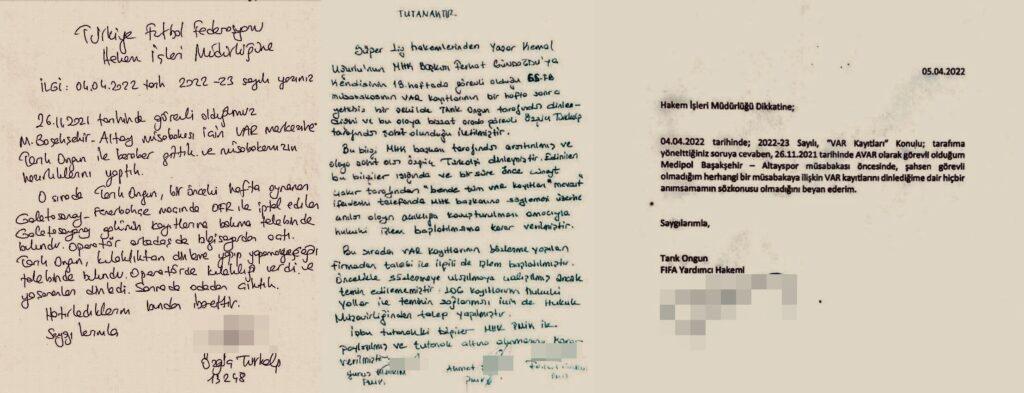 Türkiye Futbol Federasyonu
Hakem İşleri Müdürlüğüne
İLGİ: 04.04.2022 tarih 2022-23 sayılı yazınız
26.11.2021 tarihinde görevli olduğumuz
M. Başakşehir - Altay müsabakası için VAR merkezine
Tarık Ongun ile beraber gittik ve müsabakamızın
hazırlıklarını yaptık.
O sırada Tarık Ongun, bir önceki hafta oynanan
Galatasaray - Fenerbahçe maçında OFR ile iptal edilen
Galatasaray golünün kayıtlarına bakma talebinde
bulundu. Operatör arkadaş da bilgisayardan açtı.
Tarık Ongun, kulaklıktan dinleme yapıp yapamayacağı
talebinde bulundu. Operatörde kulaklığı verdi ve
yaşananları dinledi. Sonrada odadan çıktık.
Hatırladıklarım bundan ibarettir.
Saygılarımla
Özgür Türkalp
13248
TUTANAKTIR.
Süper Lig hakemlerinden Yaşar Kemal
Uğurlu'nun MHK Başkanı Ferhat Gündoğdu'ya
kendisinin 13. haftada görevli olduğu GS-FB
müsabakasının VAR kayıtlarının bir hafta sonra
bir şekilde Tarık Ongun tarafından dinlen-
diğini ve bu olaya bizzat orada görevli Özgür Türkalp
tarafından şahit olunduğu iletilmiştir.
Bu bilgi MHK başkanı tarafından araştırılmış ve
olaya şahit olan Özgür Türkalp dinlenmiştir. Edinilen
bu bilgiler ışığında ve bir süre önce Cüneyt
Çakır tarafından "bende tüm VAR kayıtları mevcut"
ifadesini telefonda MHK başkanına söylemesi üzerine
anılan olayın açıklığa kavuşturulması amacıyla
hukuki işlem başlatılmasına karar verilmiştir.
Bu sırada VAR kayıtlarının sözleşme yapılan
firmadan talebi ile ilgili de işlem başlatılmıştır.
Öncelikle sözleşmeye ulaşılmaya çalışılmış ancak
temin edilememiştir. LOG kayıtlarının hukuki
yollar ile teminin sağlanması için de Hukuk
Müşavirliğinden talep yapılmıştır.
İşbu tutanaktaki bilgiler MHK ile
paylaşılmış ve tutanak altına alınmasına karar
verilmiştir.
Ahmet
05.04.2022
Hakem İşleri Müdürlüğü Dikkatine;
04.04.2022 tarihinde; 2022-23 Sayılı, "VAR Kayıtları" Konulu; tarafıma
yönelttiğiniz soruya cevaben, 26.11.2021 tarihinde AVAR olarak görevli olduğum
Medipol Başakşehir – Altayspor müsabakası öncesinde, şahsen görevli
olmadığım herhangi bir müsabakaya ilişkin VAR kayıtlarını dinlediğime dair hiçbir
anımsamamın sözkonusu olmadığını beyan ederim.
Saygılarımla,
Tarık Ongun
FIFA Yardımcı Hakemi